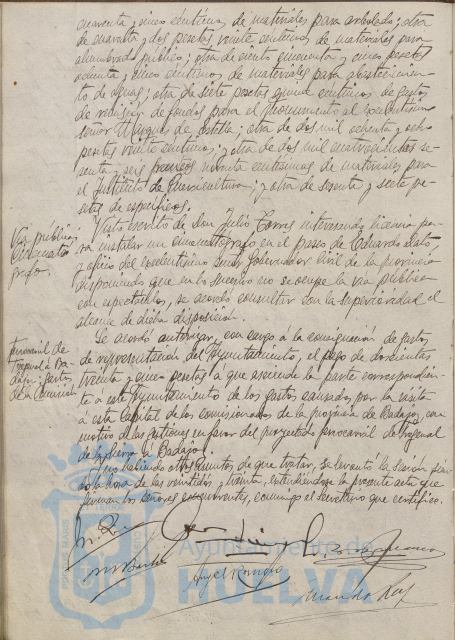 cuarenta y cinco céntimos de materiales para arbolado; otra
de cuarenta y dos pesetas veinte céntimos de materiales para
alumbrado público; otra de ciento cincuenta y cinco pesetas
ochenta y cinco céntimos de materiales para abastecimien-
to de aguas; otra de siete pesetas quince céntimos de gastos
de remisión de fondos para el monumento al excelentísimo
señor Marqués de Estella; otra de dos mil ochenta y ocho
pesetas veinte céntimos; otra de dos mil cuatrocientas se-
senta y seis pesetas noventa céntimos de materiales para
el Instituto de Puericultura; y otra de sesenta y siete pe-
setas de específicos.
Vía pública
Cinemató
grafo.
Visto escrito de Don Julio Torres interesando licencia pa-
ra instalar un cinematógrafo en el paseo de Eduardo Dato
y oficio del excelentísimo señor Gobernador Civil de la provincia
disponiendo que en lo sucesivo no se ocupe la vía pública
con espectáculos, se acordó consultar con la superioridad el
alcance de dicha disposición.
Ferrocarril de
Fregenal a Ba-
dajoz: gastos
de la Comisión
Se acordó autorizar, con cargo á la consignación de gastos
de representación del Ayuntamiento, el pago de doscientas
treinta y cinco pesetas a que asciende la parte correspondien-
te a este Ayuntamiento de los gastos causados por la visita
á esta Capital de los comisionados de la provincia de Badajoz, con
motivo de las gestiones en favor del proyectado ferrocarril de Fregenal
de la Sierra a Badajoz.
Y no habiendo otros asuntos de que tratar, se levantó la sesión sien-
do la hora de las veintidós y treinta, extendiéndose la presente acta que
firman los señores concurrentes, conmigo el Secretario que certifico.
Ayuntamiento de
HUELVA